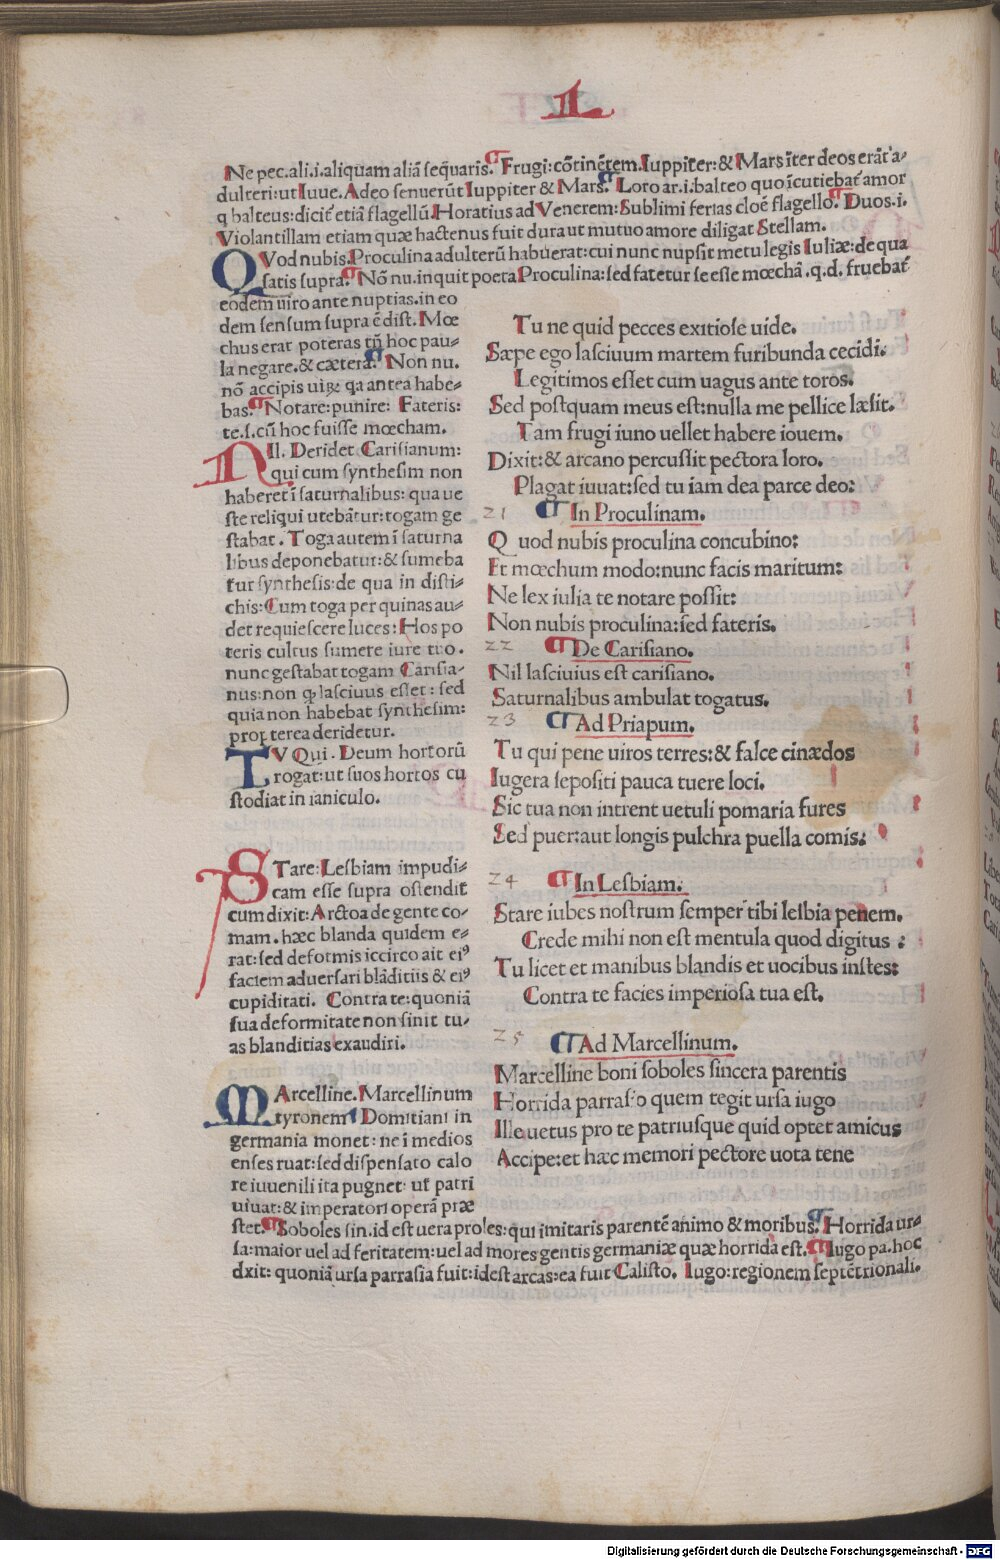 L
Ne pec.ali.i.aliquam aliā seq̄uaris. Frugi:cōtinētem.Iuppiter:& Mars īter deos erāt a⸗
dulteri:ut Iuue. Adeo senuerūt Iuppiter & Mars. Loro ar.i.balteo quo īcutiebat̄ amor
q balteus:dicit̄ etiā flagellū.Horatius ad Venerem:Sublimi ferias cloē flagello. Duos.i.
Violantillam etiam quæ hactenus fuit dura ut mutuo amore diligat Stellam.
QVod nubis.Proculina adulterū habuerat:cui nunc nupsit metu legis Iuliæ:de qua
satis supra. Nō nu.inquit poeta Proculina:sed fatetur se esse mœchā.q.d. fruebat̄
eodem uiro ante nuptias.in eo
dem sensum supra ē dist. Mœ
chus erat poteras tn̄ hoc pau⸗
la negare.& cætera. Non nu.
nō accipis uiꝝ qa antea habe⸗
bas. Notare:punire: Fateris:
te.s.cū hoc fuisse mœcham.
NIl. Deridet Carisianum:
qui cum synthesim non
haberet ī saturnalibus: qua ue
ste reliqui utebātur:togam ge
stabat. Toga autem ī saturna
libus deponebatur:& sumeba
tur synthesis:de qua in disti⸗
chis:Cum toga per quinas au⸗
det requiescere luces: Hos po
teris cultus sumere iure tuo.
nunc gestabat togam Carisia⸗
nus:non qꝫ lasciuus esset: sed
quia non habebat synthesim:
propterea deridetur.
TV Qui. Deum hortorū
rogat:ut suos hortos cu
stodiat in ianiculo.
STare:Lesbiam impudi⸗
cam esse supra ostendit
cum dixit:Arctoa de gente co⸗
mam. hæc blanda quidem e⸗
rat:sed deformis iccirco ait eiꝰ
faciem aduersari blāditiis & eiꝰ
cupiditati. Contra te:quoniā
sua deformitate non sinit tu⸗
as blanditias exaudiri.
MArcelline. Marcellinum
tyronem Domitiani in
germania monet:ne ī medios
enses ruat:sed dispensato calo
re iuuenili ita pugnet: ut patri
uiuat:& imperatori operā præ
stet. Soboles sin.id est uera proles:qui imitaris parentē animo & moribus. Horrida ur⸗
sa:maior uel ad feritatem:uel ad mores gentis germaniæ quæ horrida est. Iugo pa.hoc
dxit: quoniā ursa parrasia fuit:idest arcas:ea fuit Calisto. Iugo:regionem septētrionali.
Tu ne quid pecces exitiose uide.
Sæpe ego lasciuum martem furibunda cecidi.
Legitimos esset cum uagus ante toros.
Sed postquam meus est:nulla me pellice læsit.
Tam frugi iuno uellet habere iouem.
Dixit:& arcano percussit pectora loro.
Plagat iuuat:sed tu iam dea parce deo:
21 In Proculinam.
Quod nubis proculina concubino:
Et mœchum modo:nunc facis maritum:
Ne lex iulia te notare possit:
Non nubis proculina:sed fateris.
22 De Carisiano.
Nil lasciuius est carisiano.
Saturnalibus ambulat togatus.
23 Ad Priapum.
Tu qui pene uiros terres:& falce cinædos
Iugera sepositi pauca tuere loci.
Sic tua non intrent uetuli pomaria fures
Sed puer:aut longis pulchra puella comis:
24 In Lesbiam:
Stare iubes nostrum semper tibi lesbia penem.
Crede mihi non est mentula quod digitus :
Tu licet et manibus blandis et uocibus instes:
Contra te facies imperiosa tua est.
25 Ad Marcellinum.
Marcelline boni soboles sincera parentis
Horrida parrasio quem tegit ursa iugo
Ille uetus pro te patriusque quid optet amicus
Accipe:et hæc memori pectore uota tene
Digitalisierung gefördert durch die Deutsche Forschungsgemeinschaft - DFG